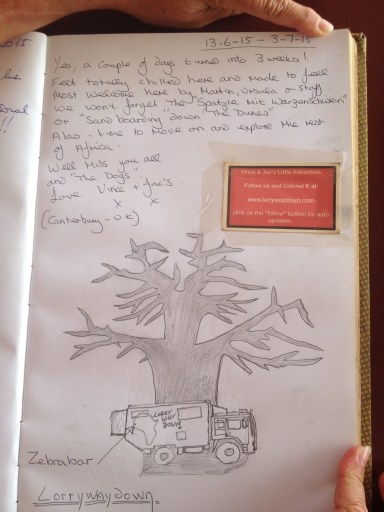 2015
13-6-15 - 3-7-15
Yes, a couple of days turned into 3 weeks!
Felt totally chilled here and made to feel
most welcome here by Martin, Ursula & Staff
We won't forget "The Spatzle Mit Warzenschwein"
or "Sandboarding down The Dunes".
Alas - time to move on and explore the rest
of Africa.
Well miss you all
and "The Dogs".
Love Vince + Jac's
x x
(Canterbury - UK)
Vince & Jac's Little Adventure.
Follow us and Colonel K at:
www.lorrywaydown.com
click on the "follow" button for auto
updates.
LORRY
WAY
DOWN
Zebrabar
Lorrywaydown.